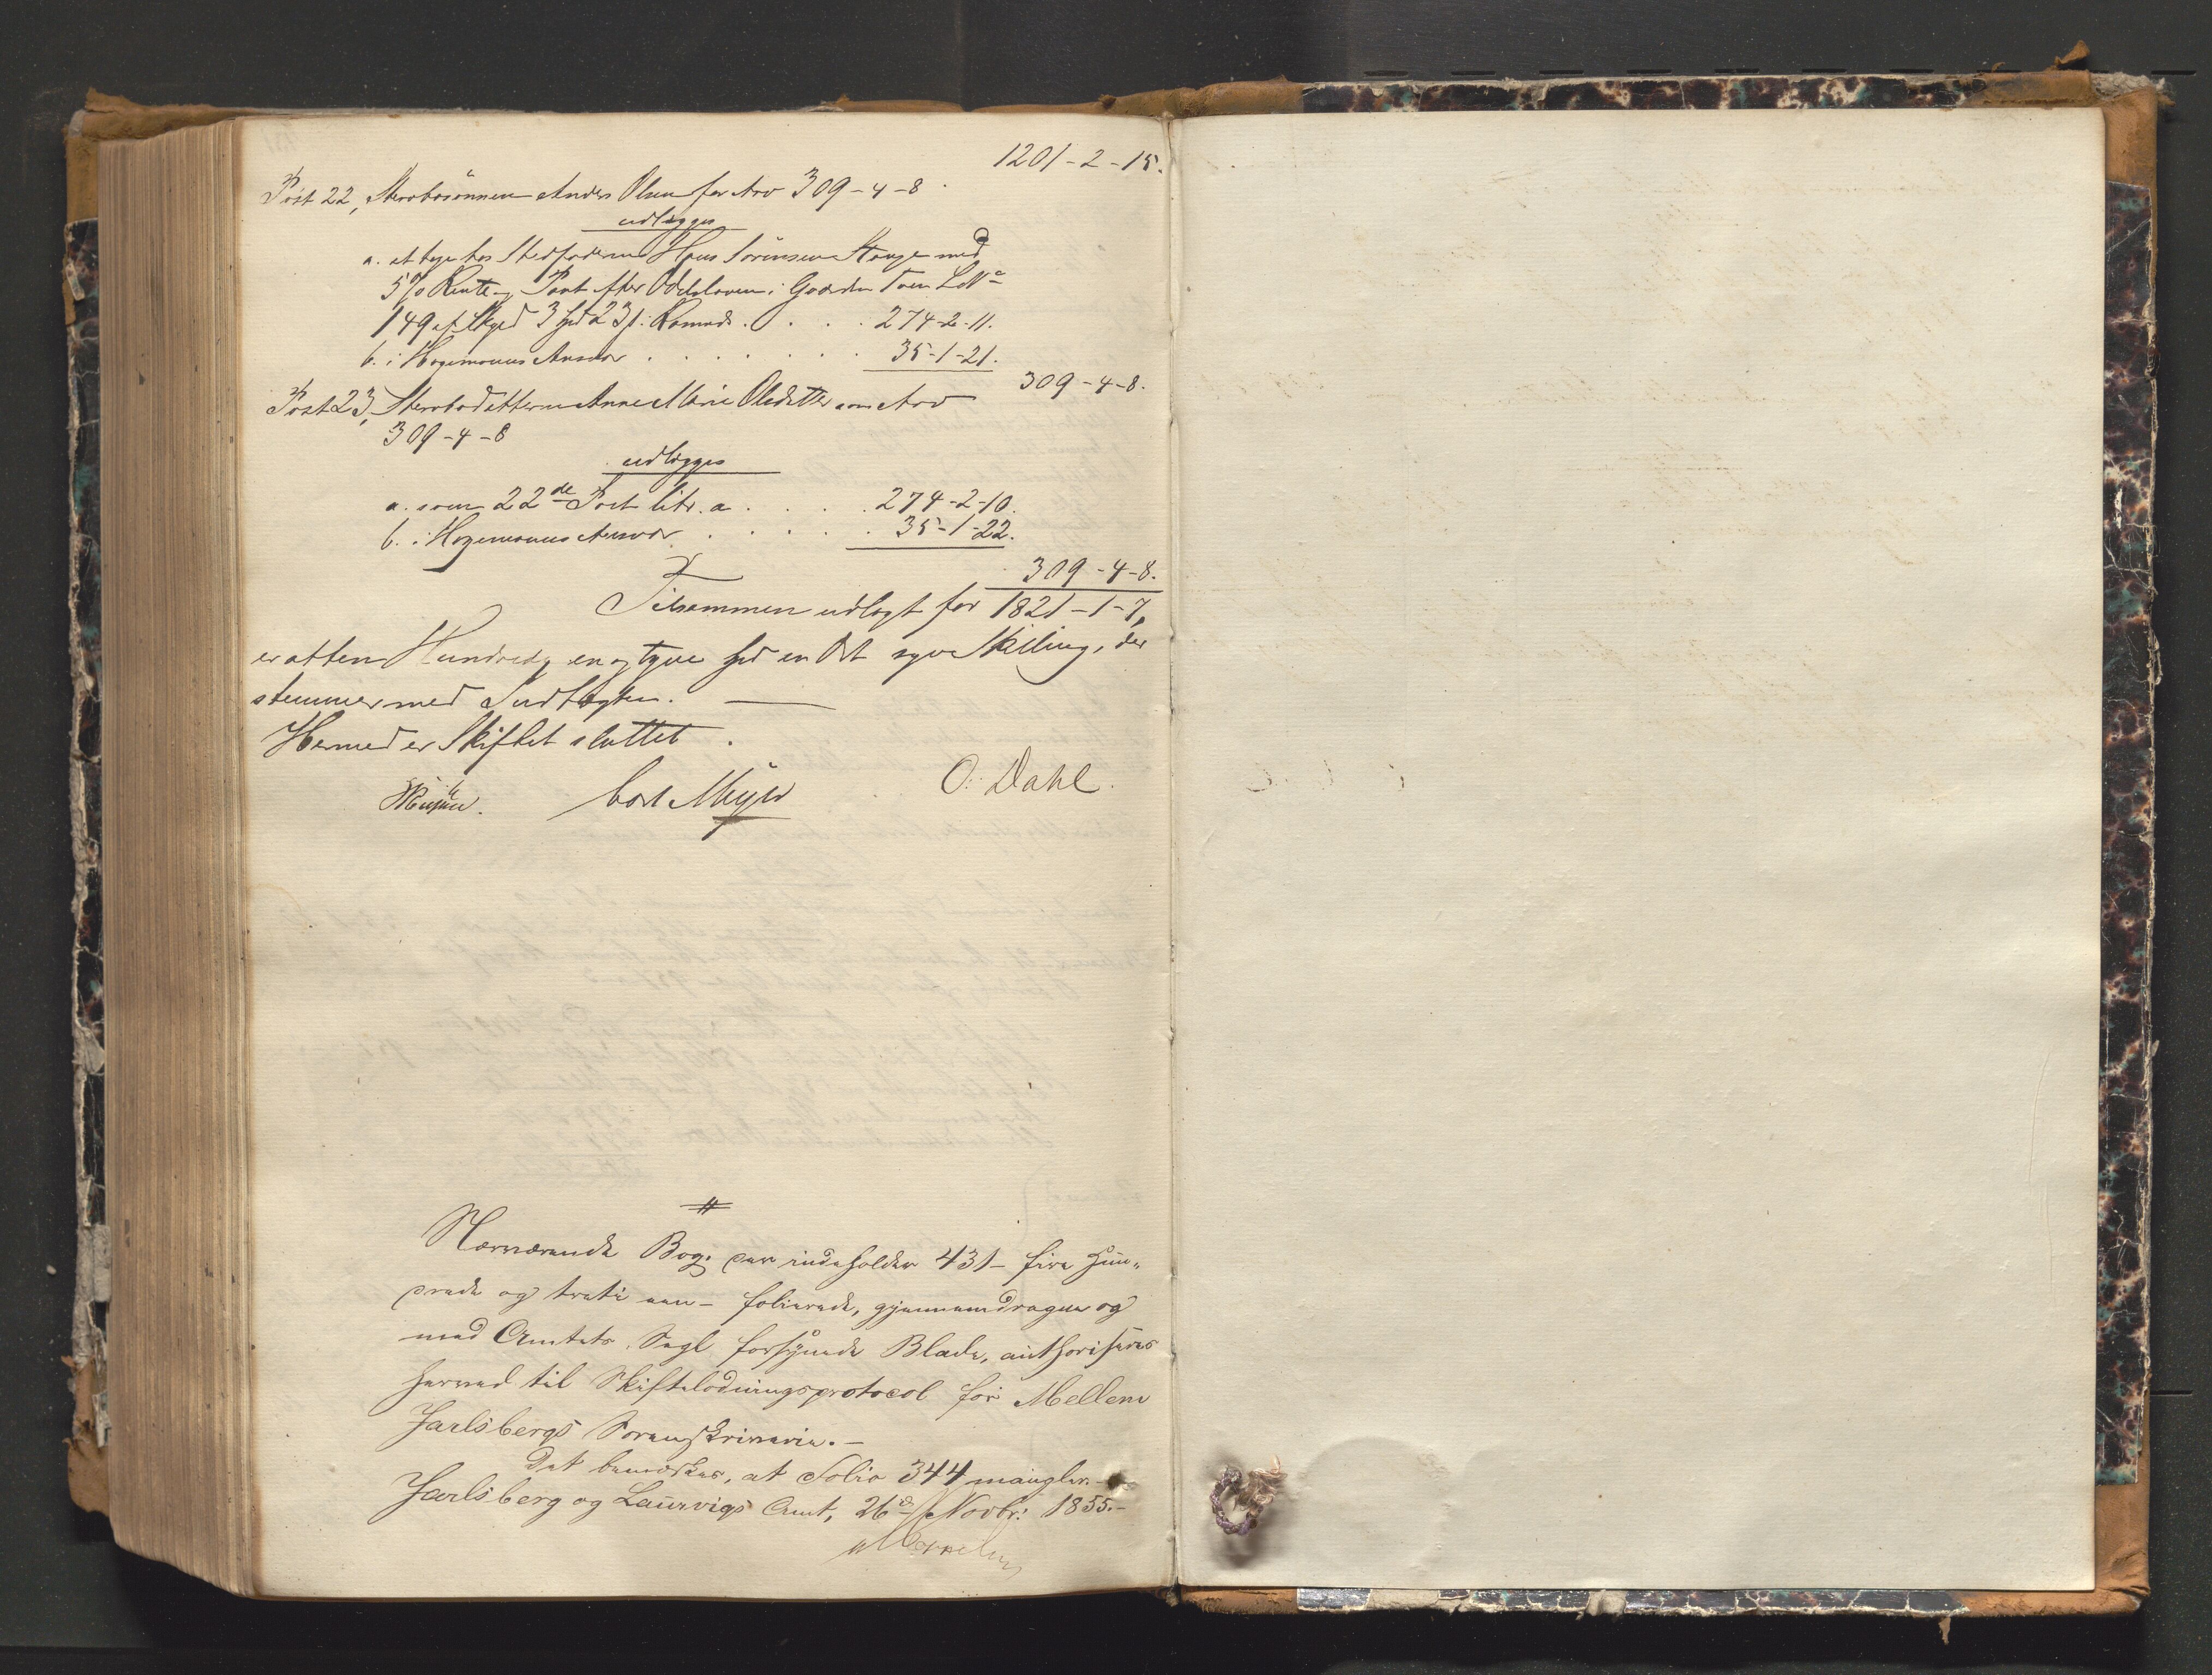 1201-2-15.
Post 22, Sterbosönnen Anders Olsen for Arv 309-4-8
udlægges
a. at hos Stedfaderen Hans Sörensen med
5% Rente og Pant efter Odelsloven i Gaarden
149 af Skyld 3 23
274-2-11.
b. i Ansvar . . . . . . . 35-1-21.
309-4-8.
Post 23, Sterbodatteren Anne Marie Olsdatter som Arv
309-4-8
udlægges
a. som 22de Post litr. a . . . . . 274-2-10.
b. i Ansvar . . . . . 35-1-22.
309-4-8.
Tilsammen udlagt for 1821-1-7,
er atten Hundrede en og tyve Spd en Ort syv Skilling, der
stemmer med Indtægten. —
Hermed er Skiftet sluttet.
Carl Meyer
O. Dahl.
Nærværende Bog, der indeholder 431 - fire Hun-
drede og treti een - folierede, gjennemdragne og
med Amtets Segl forsynede Blade, authoriseres
herved til Skifteudlodningsprotocol for Mellem
Jarlsbergs Sorenskriverie.-
Det bemærkes, at Folio 344 mangler.-
Jarlsberg og Laurvigs Amt, 26de Novbr: 1855.-